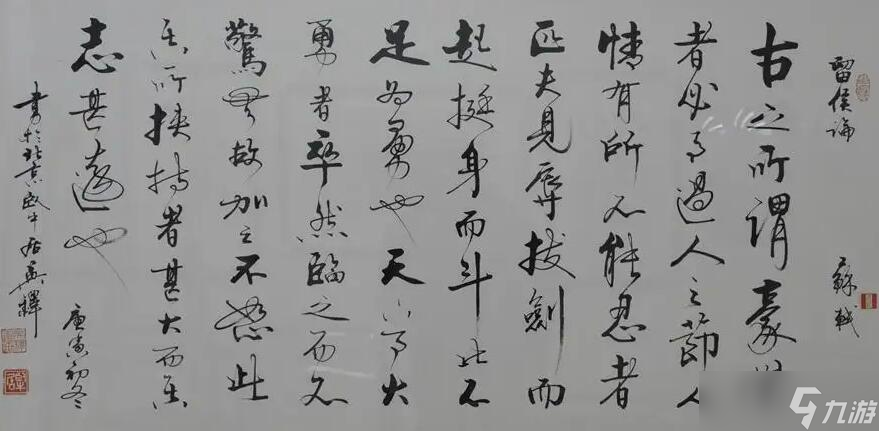 留侯論
蘇軾
古之所謂豪
者必有過人之節人
情有所不能忍者
匹夫見辱拔劍而
起挺身而斗此不
足為勇也天下有大
勇者卒然臨之而不
驚無故加之不怒此
其所挾持者甚大而其
志甚遠也
庚寅初冬
書於北京
九游